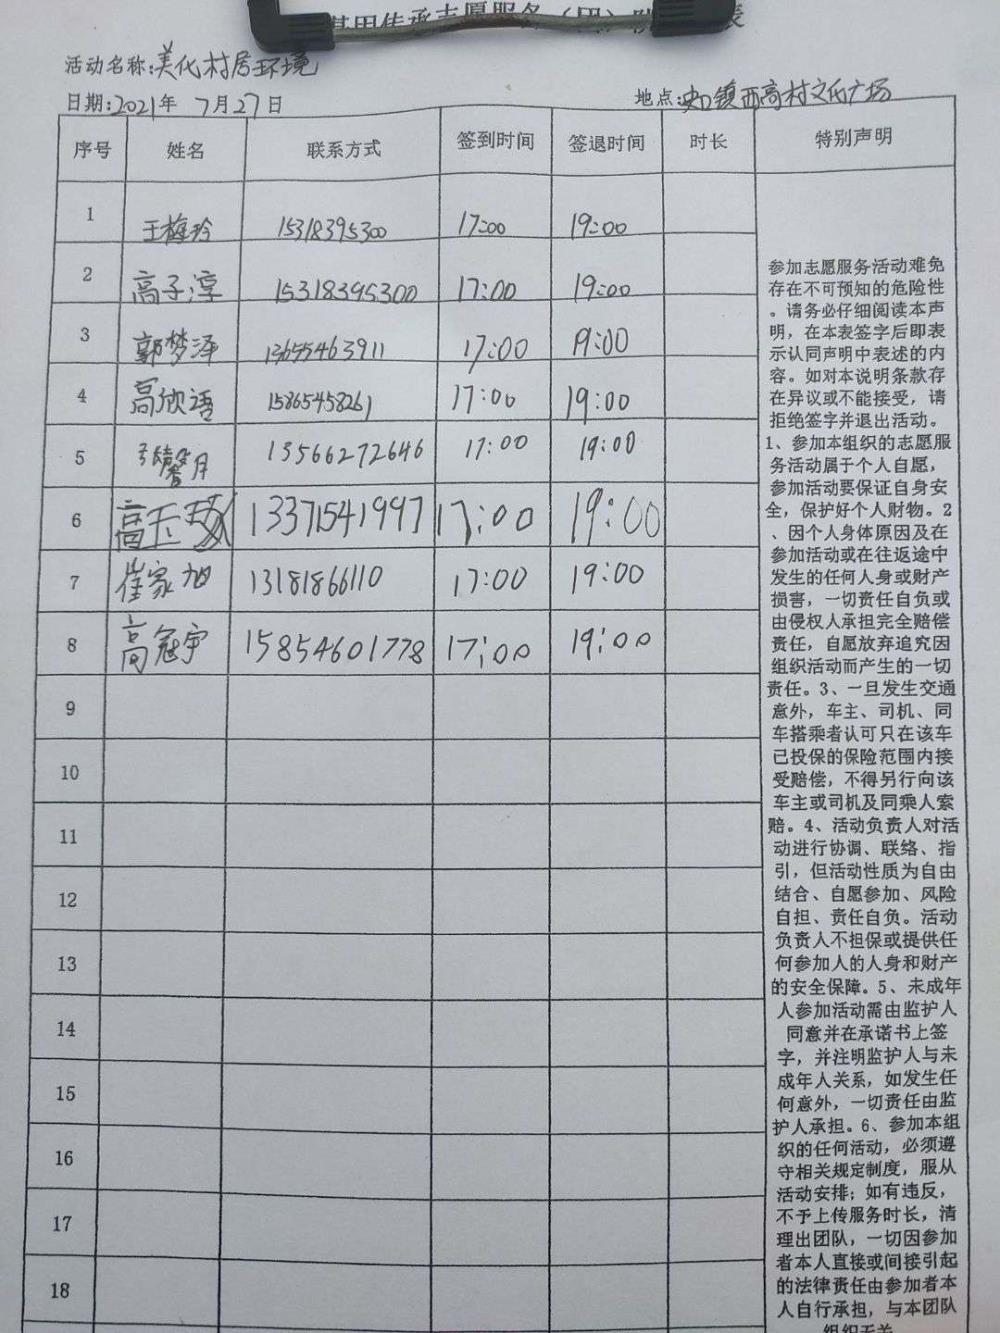 基因传承志愿服务（团）队
表
活动名称:美化村居环境
日期:2021年 7月27日
地点:史口镇西高村文化广场
序号 姓名 联系方式 签到时间 签退时间 时长 特别声明
1 王梅玲 15318395300 17:00 19:00
2 高子淳 15318395300 17:00 19:00
3 郭梦泽 13655463911 17:00 19:00
4 高欣语 15865458261 17:00 19:00
5 张馨月 13566272646 17:00 19:00
6 高玉 13371541997 17:00 19:00
7 崔家旭 13181866110 17:00 19:00
8 高冠宇 15854601778 17:00 19:00
9
10
11
12
13
14
15
16
17
18
参加志愿服务活动难免
存在不可预知的危险性
。请务必仔细阅读本声
明，在本表签字后即表
示认同声明中表述的内
容。如对本说明条款存
在异议或不能接受，请
拒绝签字并退出活动。
1、参加本组织的志愿服
务活动属于个人自愿，
参加活动要保证自身安
全，保护好个人财物。2
、因个人身体原因及在
参加活动或在往返途中
发生的任何人身或财产
损害，一切责任自负或
由侵权人承担完全赔偿
责任，自愿放弃追究因
组织活动而产生的一切
责任。3、一旦发生交通
意外，车主、司机、同
车搭乘者认可只在该车
已投保的保险范围内接
受赔偿，不得另行向该
车主或司机及同乘人索
赔。4、活动负责人对活
动进行协调、联络、指
引，但活动性质为自由
结合、自愿参加、风险
自担、责任自负。活动
负责人不担保或提供任
何参加人的人身和财产
的安全保障。5、未成年
人参加活动需由监护人
同意并在承诺书上签
字，并注明监护人与未
成年人关系，如发生任
何意外，一切责任由监
护人承担。6、参加本组
织的任何活动，必须遵
守相关规定制度，服从
活动安排；如有违反，
不予上传服务时长，清
理出团队，一切因参加
者本人直接或间接引起
的法律责任由参加者本
人自行承担，与本团队
组织无关